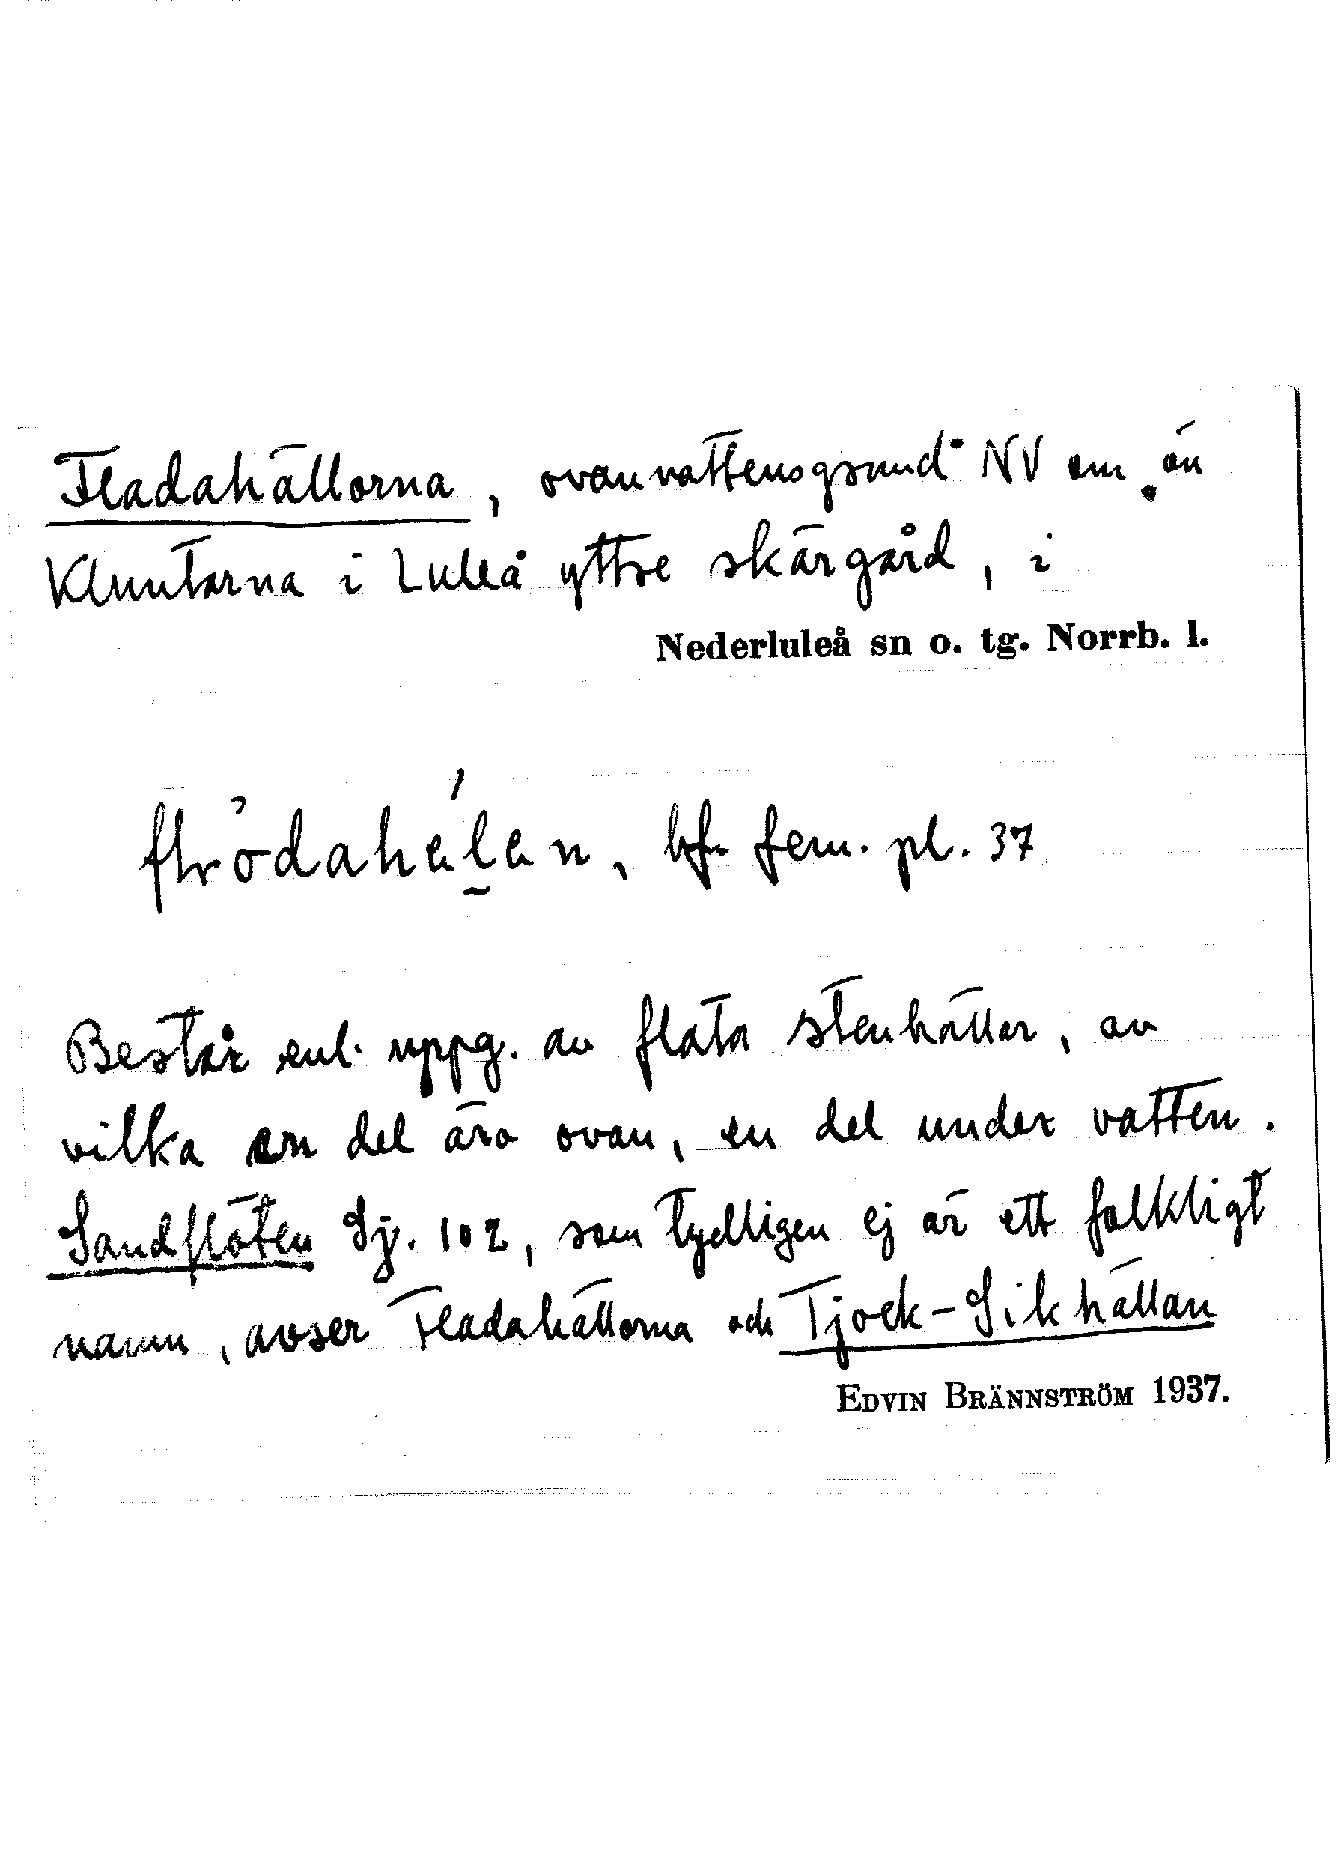 Fladahällorna, ovanvattensgrund NV om ön
Kluntarna i Luleå yttre skärgård, i
Nederluleå sn o. tg. Norrb. l.
bf. fem. pl. 37
Består enl. uppg. av flata stenhällar, av
vilka en del äro ovan, en del under vatten.
Sandflöten Sj. 102, som tydligen ej är ett folkligt
namn, avser Fladahällorna och Tjock-Sikhällan
EDVIN BRÄNNSTRÖM 1937.